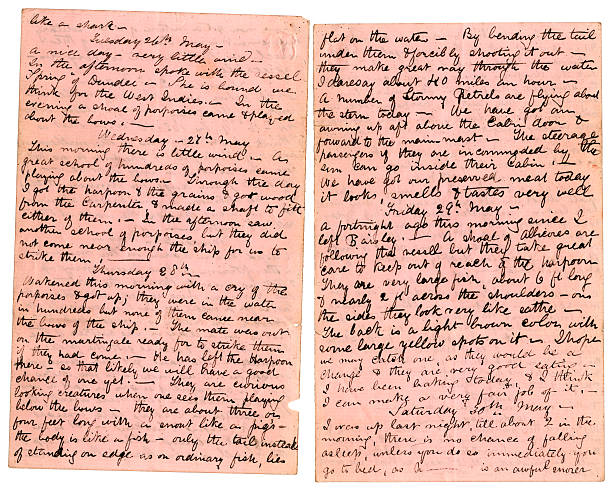 like a shark —
Tuesday 26th May —
A nice day — very little wind —
In the afternoon spoke with the vessel
Spring of Dundee — She is bound we
think for the West Indies — In the
evening a shoal of porpoises came & played
about the bows. —
Wednesday — 27th May
This morning there is little wind — A
great school of hundreds of porpoises came
playing about the bows — Through the day
I got the harpoon & the grains & got wood
from the Carpenter & made a shaft to fit
either of them — In the afternoon saw
another school of porpoises, but they did
not come near enough the ship for us to
strike them. —
Thursday 28th
Wakened this morning with a cry of the
porpoises & got up, they were in the water
in hundreds but none of them came near
the bows of the ship — The mate was out
on the martingale ready for to strike them
if they had come. — He has left the harpoon
there — so that likely we will have a good
chance of one yet. — They are curious
looking creatures when one sees them playing
below the bows — they are about three or
four feet long with a snout like a pigs —
the body is like a fish — only the tail instead
of standing on edge as an ordinary fish, lies
flat on the water — By bending the tail
under them & forcibly shooting it out —
they make great way through the water
I daresay about 40 miles an hour —
A number of Stormy Petrels are flying about
the stern today — We have got an
awning up aft above the Cabin door &
forward to the mainmast — The steerage
passengers if they are incommoded by the
sun can go inside their Cabin. —
We have got our preserved meat today
it looks, smells & tastes very well
Friday 29th May —
A fortnight ago this morning since I
left — A shoal of are
following the vessel but they take great
care to keep out of reach of the harpoon
They are very large fish, about 6 ft long
& nearly 2 ft across the shoulders — on
the sides they look very like
The back is a light brown color with
some large yellow spots on it — I hope
we may catch one, as they would be a
change & they are very good eating —
I have been baking today & I think
I can make a very fair job of it. —
Saturday 30th May —
I was up last night till about 2 in the
morning, there is no chance of falling
asleep, unless you do so immediately you
go to bed, as is an awful snorer